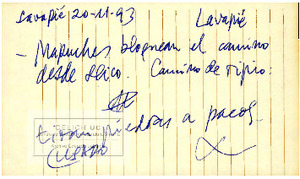 Lavapié 20-11-93 Lavapié
- Mapuches bloquean el camino
desde Llico. Camino de ripio:
tiran piedras a pacos.